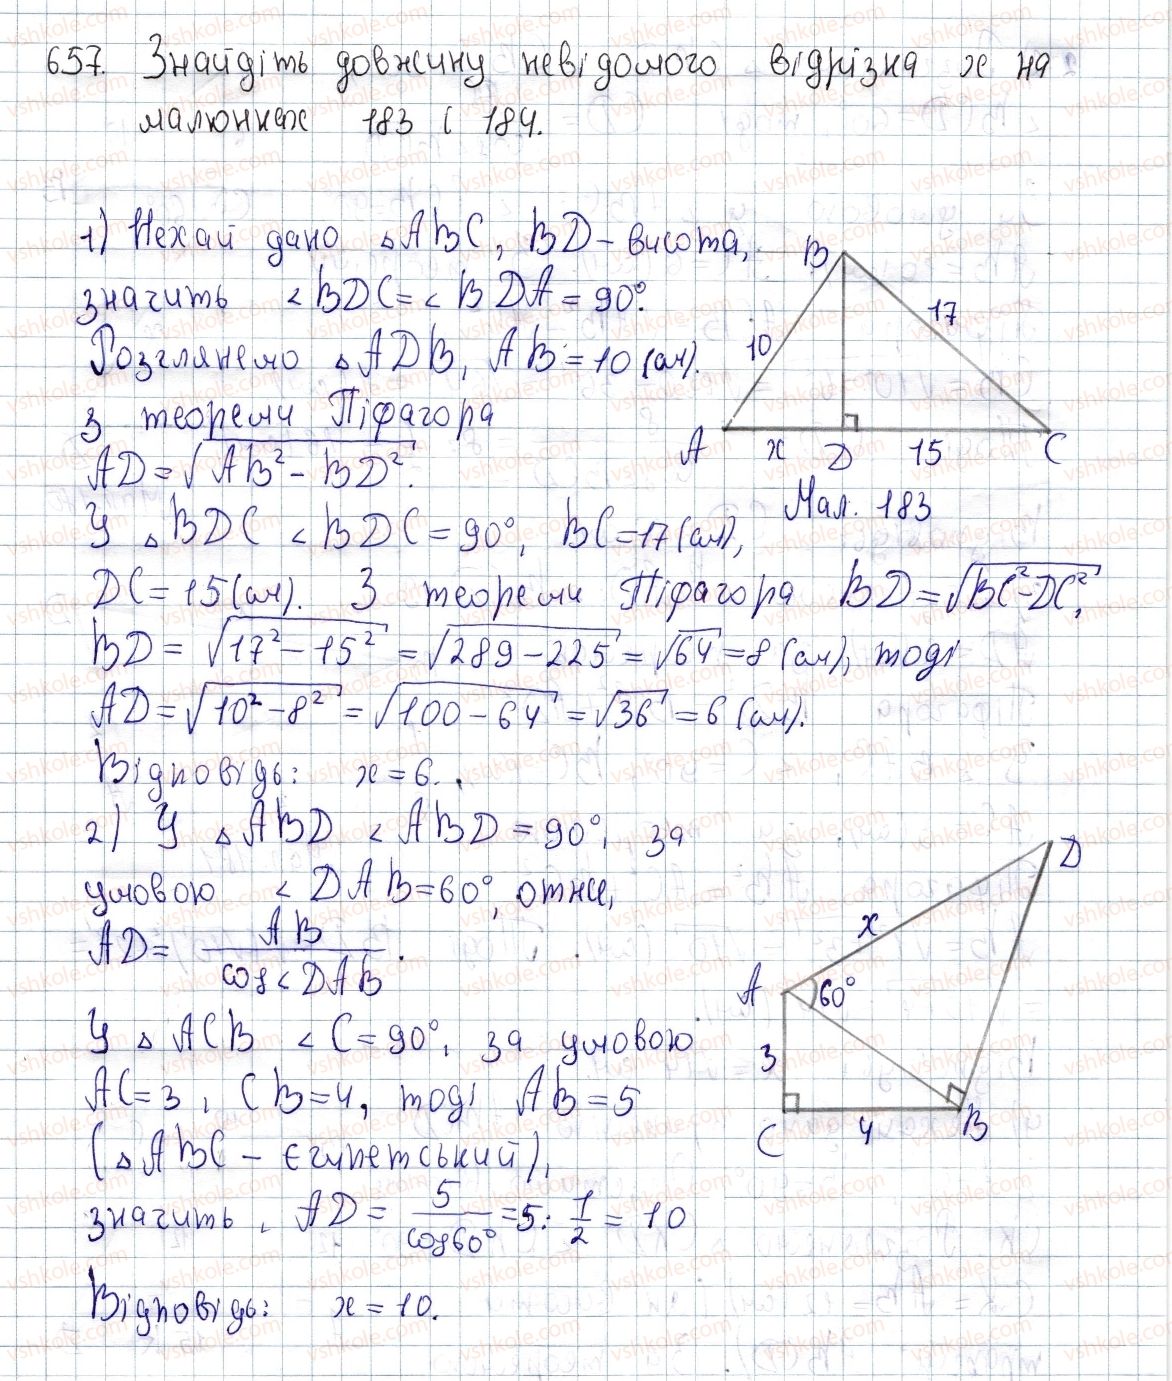 657. Знайдіть довжину невідомого відрізка x на
малюнках 183 і 184.
1) Нехай дано △ABC, BD – висота,
значить ∠BDC = ∠BDA = 90°.
Розглянемо △ADB, AB = 10 (см).
З теореми Піфагора
AD = √(AB² – BD²).
У △BDC ∠BDC = 90°, BC = 17 (см),
DC = 15 (см). З теореми Піфагора BD = √(BC² – DC²),
BD = √(17² – 15²) = √(289 – 225) = √64 = 8 (см), тоді
AD = √(10² – 8²) = √(100 – 64) = √36 = 6 (см).
Відповідь: x = 6.
B
10
17
A
x
D
15
C
Мал. 183
2) У △ABD ∠ABD = 90°, за
умовою ∠DAB = 60°, отже,
AD = AB / cos∠DAB.
У △ACB ∠C = 90°, за умовою
AC = 3, CB = 4, тоді AB = 5
(△ABC – єгипетський),
значить, AD = 5 / cos60° = 5 : 1/2 = 10
Відповідь: x = 10.
D
x
A
60°
3
C
4
B
vshkole.com